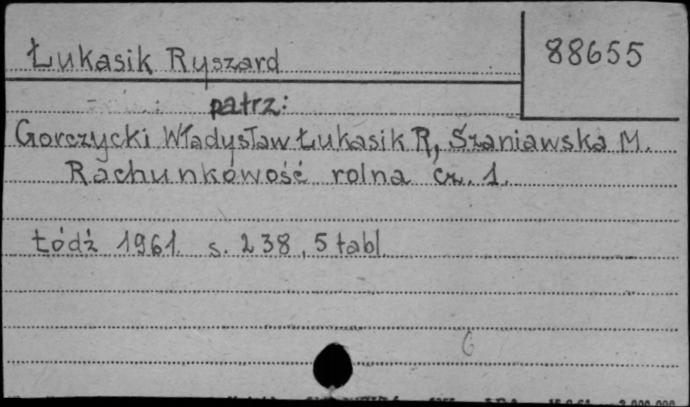 Łukasik Ryszard
88655
patrz:
Gorczycki Władysław Łukasik R, Szaniawska M.
Rachunkowość rolna cz. 1.
Łódź 1961. s. 238, 5 tabl.
6